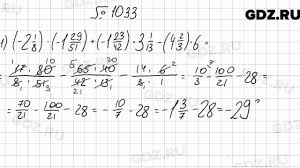 № 1033
GDZ.RU
1) (-2 1/8) · (-1 29/51) + (-1 23/42) · 3 1/13 - (4 2/3) · 6 =
= 17·80/8·51 - 65·40/42·13 - 14·6/3·1 = 10/3 - 100/21 - 28 =
= 70/21 - 100/21 - 28 = - 10/7 - 28 = -1 3/7 - 28 = -29
GDZ.RU